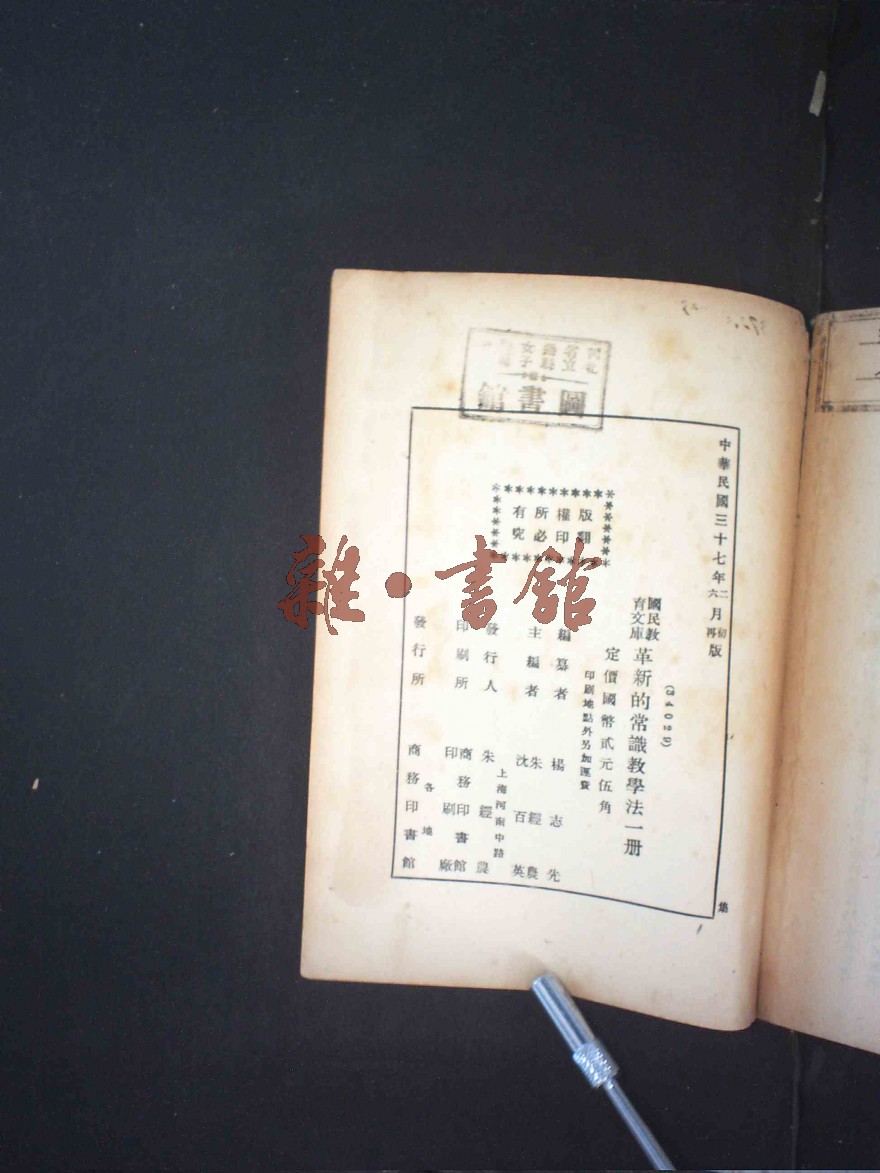 圖書館
中華民國三十七年二月初版
六月再版
(34029)
國民教育文庫
革新的常識教學法一册
定價國幣貳元伍角
印刷地點外另加運費
版權所有
翻印必究
編纂者 楊志先
主編者 朱經農
沈百英
上海河南中路
發行人 朱經農
印刷所 商務印書館
印刷廠
各地
發行所 商務印書館
雜·書館